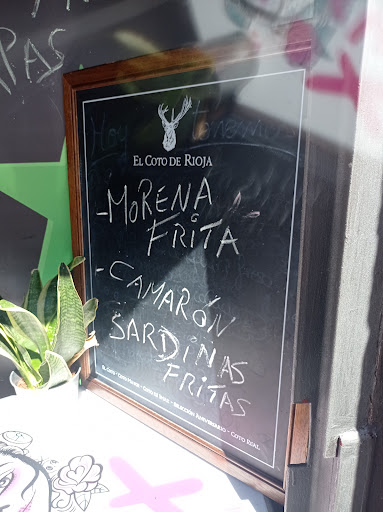 PAS
Hoy tenemos
EL COTO DE RIOJA
-MORENA
FRITA
-CAMARÓN
SARDINAS
FRITAS
EL COTO - COTO MAYOR - COTO DE IMAZ - SELECCIÓN ANIVERSARIO - COTO REAL